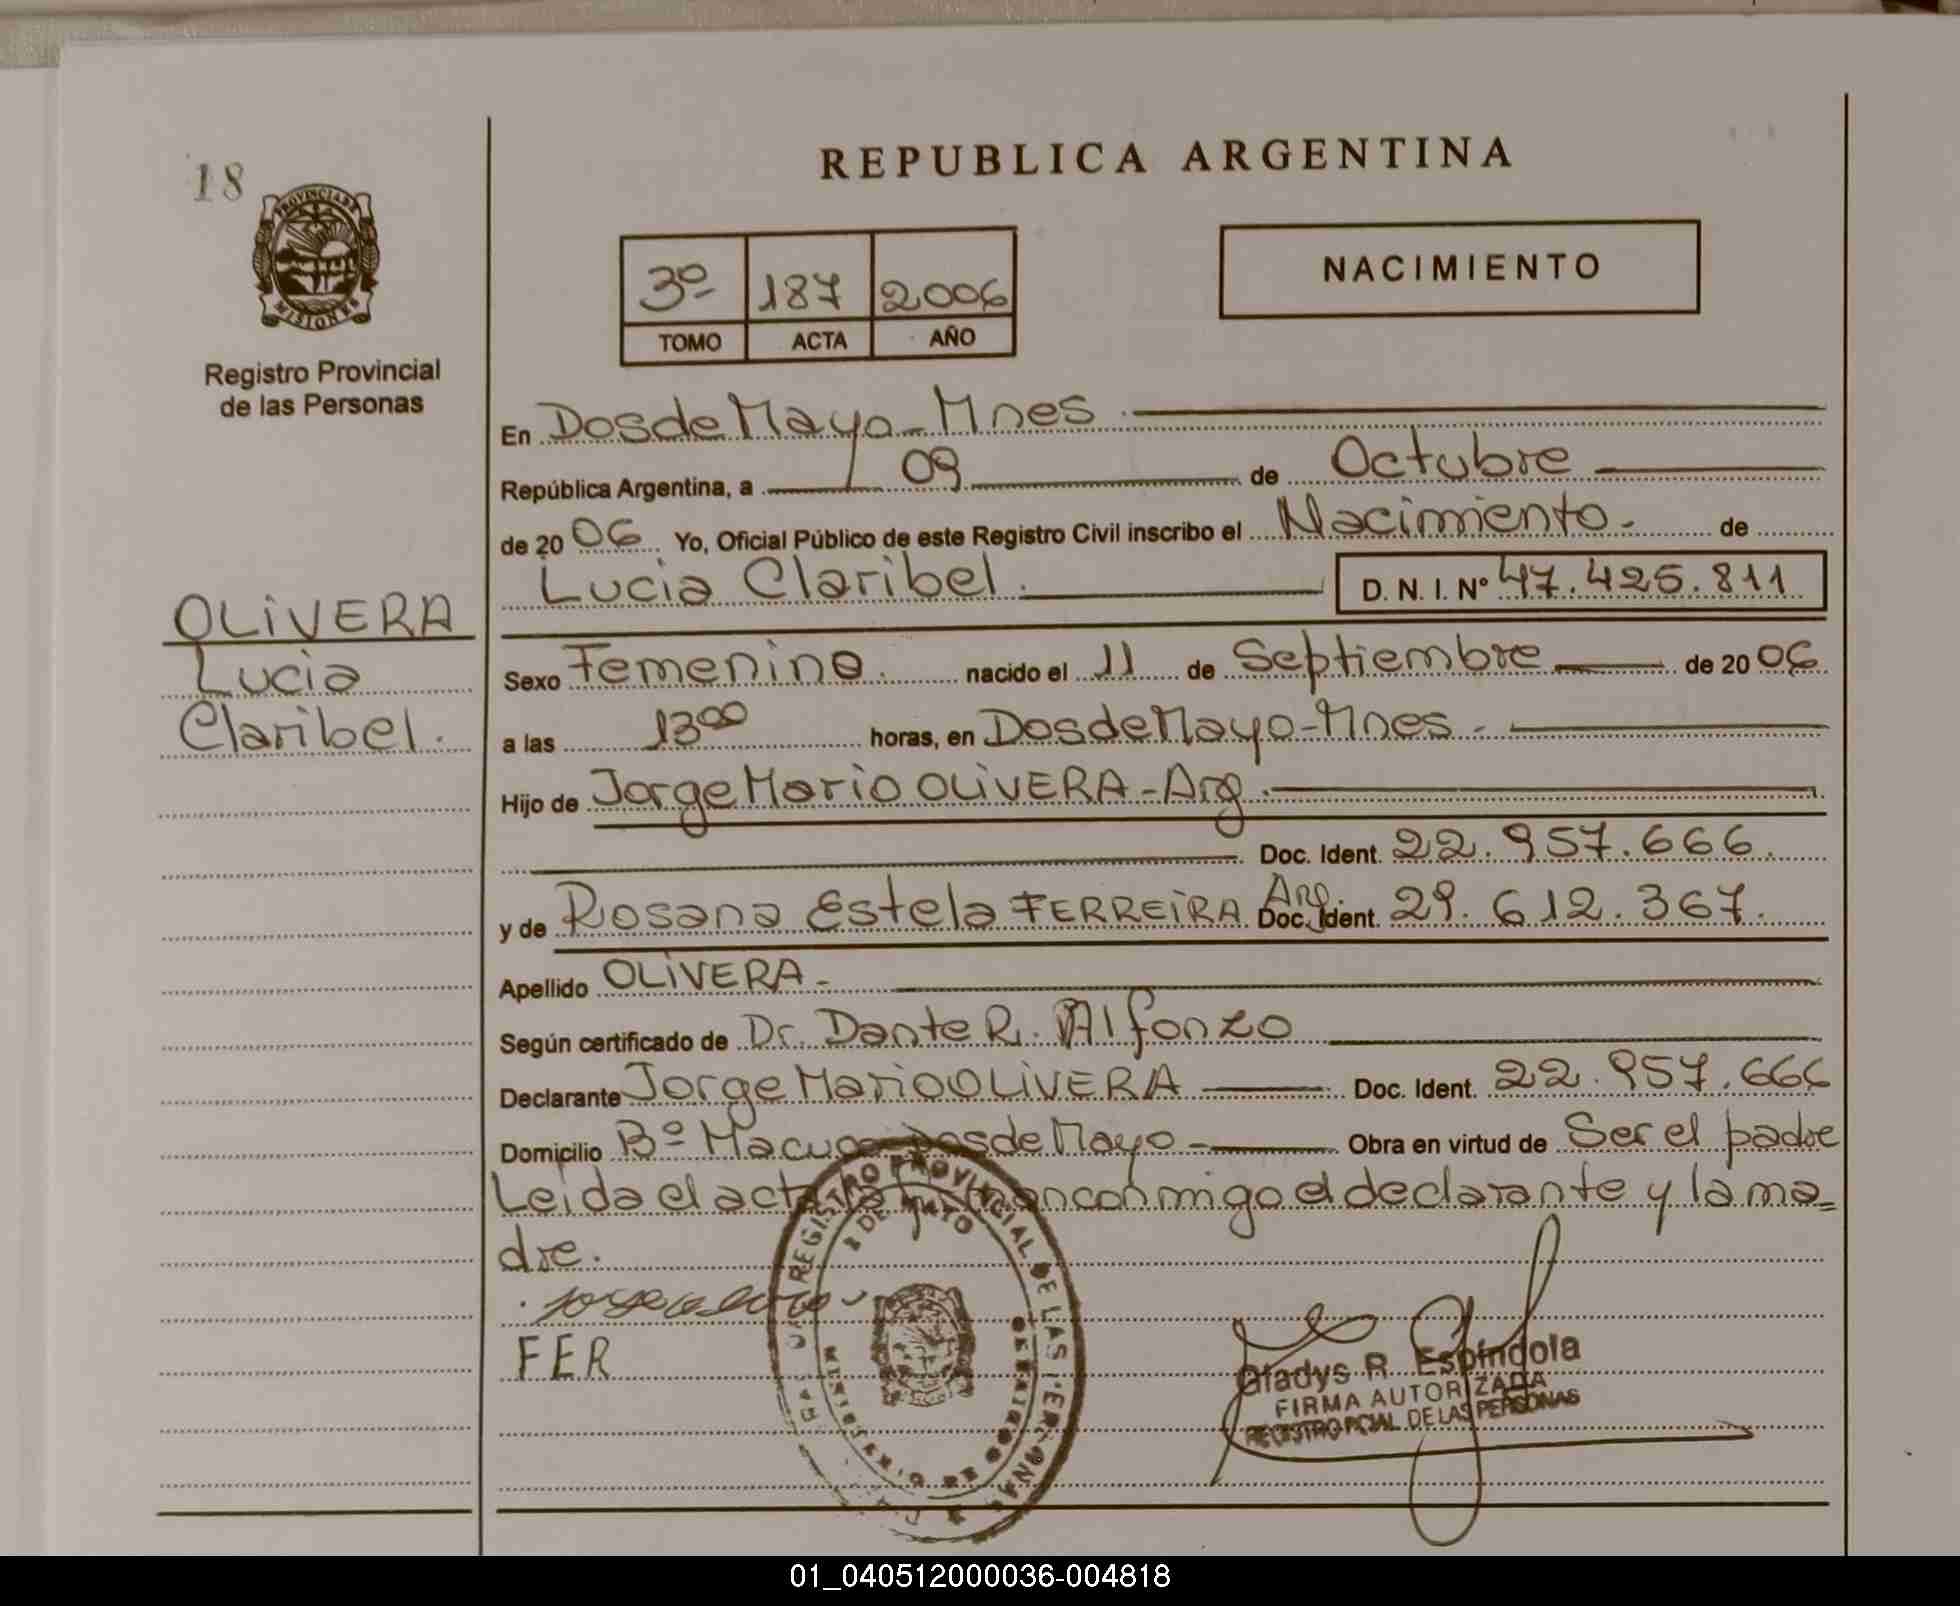 18
PROVINCIA DE
MISIONES
Registro Provincial
de las Personas
OLIVERA
Lucia
Claribel.
REPUBLICA ARGENTINA
3º 187 2006
TOMO ACTA AÑO
NACIMIENTO
En Dos de Mayo - Mnes
República Argentina, a 09 de Octubre
de 2006 Yo, Oficial Público de este Registro Civil inscribo el Nacimiento - de
Lucia Claribel. D. N. I. Nº 47.425.811
Sexo Femenino. nacido el 11 de Septiembre de 2006
a las 13⁰⁰ horas, en Dos de Mayo - Mnes -
Hijo de Jorge Mario OLIVERA - Arg.
Doc. Ident. 22.957.666.
y de Rosana Estela FERREIRA Arg. Doc. Ident. 29.612.367.
Apellido OLIVERA -
Según certificado de Dr. Dante R. Alfonzo
Declarante Jorge Mario OLIVERA Doc. Ident. 22.957.666
Domicilio Bº Macuco Dos de Mayo - Obra en virtud de Ser el padre
Leida el acta conmigo el declarante y la ma=
dre.
FER
REGISTRO PROVINCIAL DE LAS PERSONAS
2 DE MAYO
Gladys R. Espindola
FIRMA AUTORIZADA
REGISTRO PCIAL DE LAS PERSONAS
01_040512000036-004818